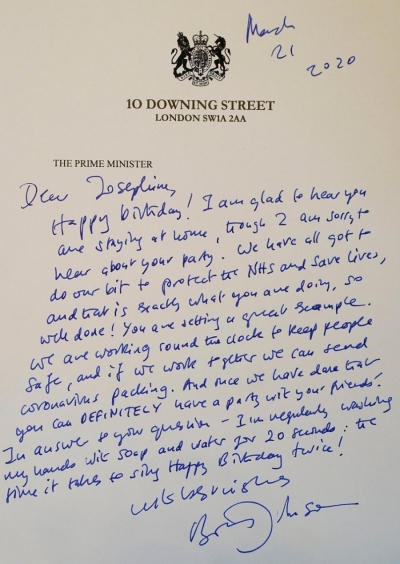 March
21
2020
10 DOWNING STREET
LONDON SW1A 2AA
THE PRIME MINISTER
Dear Josephine,
Happy birthday! I am glad to hear you
are staying at home, though I am sorry to
hear about your party. We have all got to
do our bit to protect the NHS and save lives,
and that is exactly what you are doing, so
well done! You are setting a great example.
We are working round the clock to keep people
safe, and if we work together we can send
coronavirus packing. And once we have done that
you can DEFINITELY have a party with your friends!
In answer to your question - I'm regularly washing
my hands with soap and water for 20 seconds: the
time it takes to sing Happy Birthday twice!
with best wishes
Boris Johnson